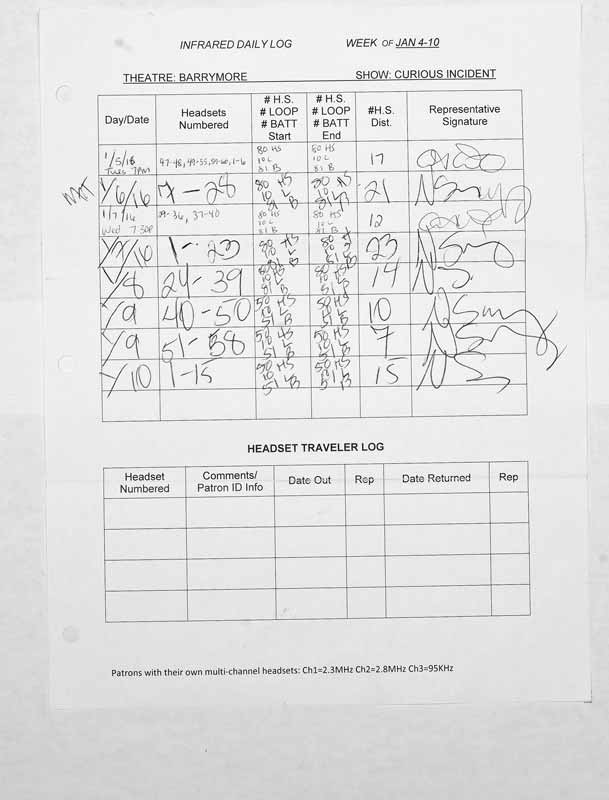 INFRARED DAILY LOG WEEK OF JAN 4-10
THEATRE: BARRYMORE SHOW: CURIOUS INCIDENT
Day/Date
Headsets
Numbered
# H.S.
# LOOP
# BATT
Start
# H.S.
# LOOP
# BATT
End
#H.S.
Dist.
Representative
Signature
1/5/16
Tues 7PM
80 HS
10 L
81 B
80 HS
10 L
81 B
17
MAT
1/6/16
7-28
80 HS
10 L
81 B
80 HS
10 L
21
1/7/16
Wed 7:30P
39-36, 37-40
80 HS
10 L
81 B
80 HS
10 L
81 B
12
1-23
80 HS
23
1/8
24-39
14
1/9
40-50
50 HS
10 L
51 B
50 HS
10 L
51 B
10
1/9
51-58
50 HS
10 L
51 B
50 HS
10 L
51 B
7
1/10
1-15
50 HS
10 L
51 B
50 HS
10 L
51 B
15
HEADSET TRAVELER LOG
Headset
Numbered
Comments/
Patron ID Info
Date Out
Rep
Date Returned
Rep
Patrons with their own multi-channel headsets: Ch1=2.3MHz Ch2=2.8MHz Ch3=95KHz